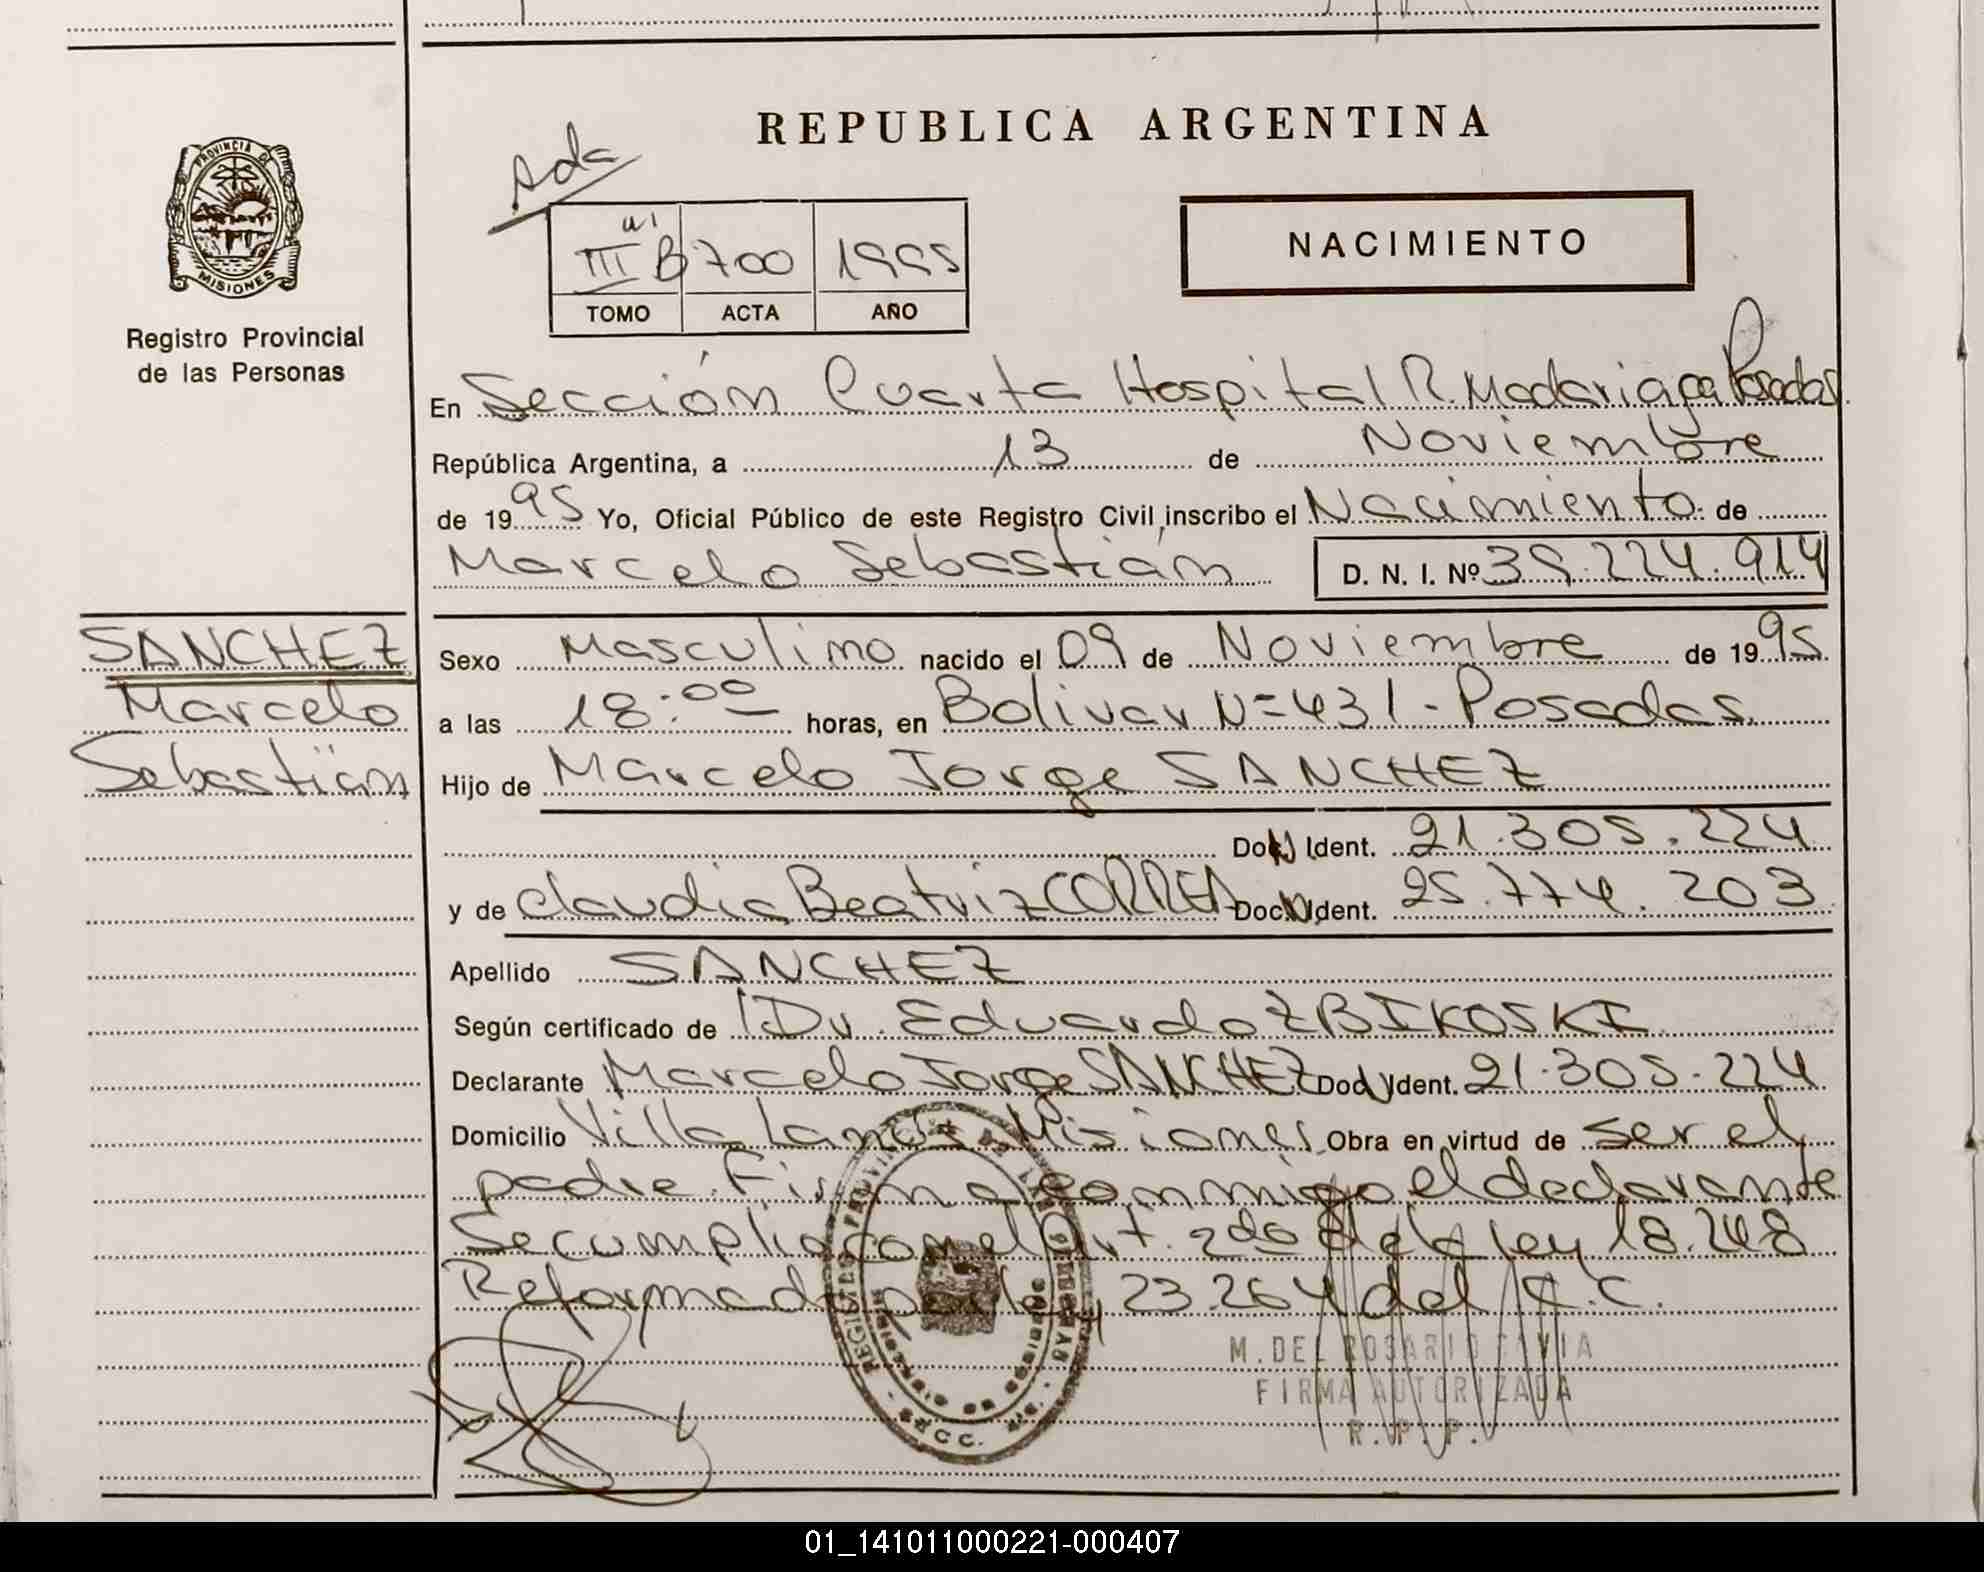 REPUBLICA ARGENTINA
Ada
PROVINCIA D
MISIONES
III B 700 1995
TOMO ACTA AÑO
NACIMIENTO
Registro Provincial
de las Personas
En Sección Cuarta Hospital R. Madariaga Posadas
República Argentina, a 13 de Noviembre
de 1995 Yo, Oficial Público de este Registro Civil, inscribo el Nacimiento de
Marcelo Sebastián D. N. I. Nº 39.224.914
SANCHEZ
Marcelo
Sebastián
Sexo Masculino nacido el 09 de Noviembre de 1995
a las 18:00 horas, en Bolivar Nº 431 - Posadas
Hijo de Marcelo Jorge SANCHEZ
Doc. Ident. 21.305.224
y de Claudia Beatriz CORREA Doc. Ident. 25.774.203
Apellido SANCHEZ
Según certificado de Dr. Eduardo ZBIKOSKI
Declarante Marcelo Jorge SANCHEZ Doc. Ident. 21.305.224
Domicilio Villa Lanús Misiones Obra en virtud de ser el
padre. Firma conmigo el declarante
Se cumplió con el Art. 2do de la Ley 18.248
Reformado 23.264 del C.C.
M. DEL ROSARIO
FIRMA AUTORIZADA
R. P. P.
01_141011000221-000407